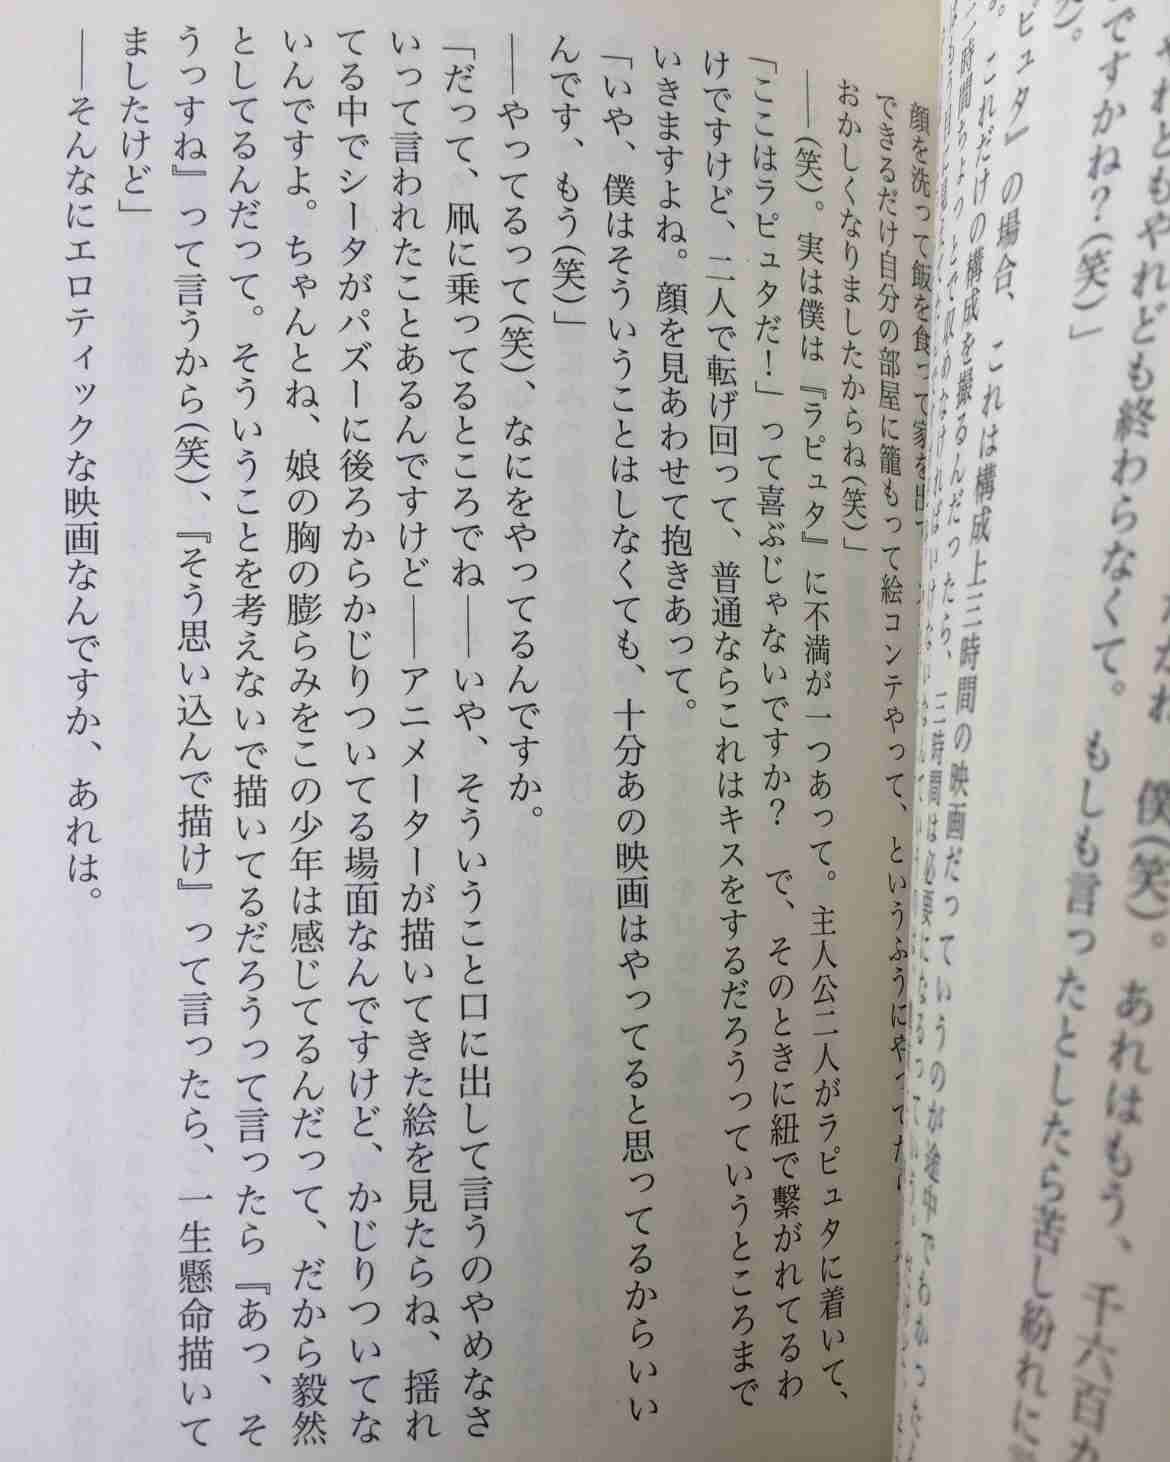 やれどもやれども終わらなくて。もしも言ったとしたら苦し紛れに
ですかね？(笑)」
の場合、これは構成上三時間の映画だっていうのが途中でわかった
これだけの構成を撮るんだったら、三時間は必要になるっていう
顔を洗って飯を食って家を出て
できるだけ自分の部屋に籠もって絵コンテやって、というふうにやってた
おかしくなりましたからね(笑)」
――(笑)。実は僕は『ラピュタ』に不満が一つあって。主人公二人がラピュタに着いて、
「ここはラピュタだ！」って喜ぶじゃないですか？　で、そのときに紐で繋がれてるわ
けですけど、二人で転げ回って、普通ならこれはキスをするだろうっていうところまで
いきますよね。顔を見あわせて抱きあって。
「いや、僕はそういうことはしなくても、十分あの映画はやってると思ってるからいい
んです、もう(笑)」
――やってるって(笑)、なにをやってるんですか。
「だって、凧に乗ってるところでね――いや、そういうこと口に出して言うのやめなさ
いって言われたことあるんですけど――アニメーターが描いてきた絵を見たらね、揺れ
てる中でシータがパズーに後ろからかじりついてる場面なんですけど、かじりついてな
いんですよ。ちゃんとね、娘の胸の膨らみをこの少年は感じてるんだって、だから毅然
としてるんだって。そういうことを考えないで描いてるだろうって言ったら『あっ、そ
うっすね』って言うから(笑)、『そう思い込んで描け』って言ったら、一生懸命描いて
ましたけど」
――そんなにエロティックな映画なんですか、あれは。